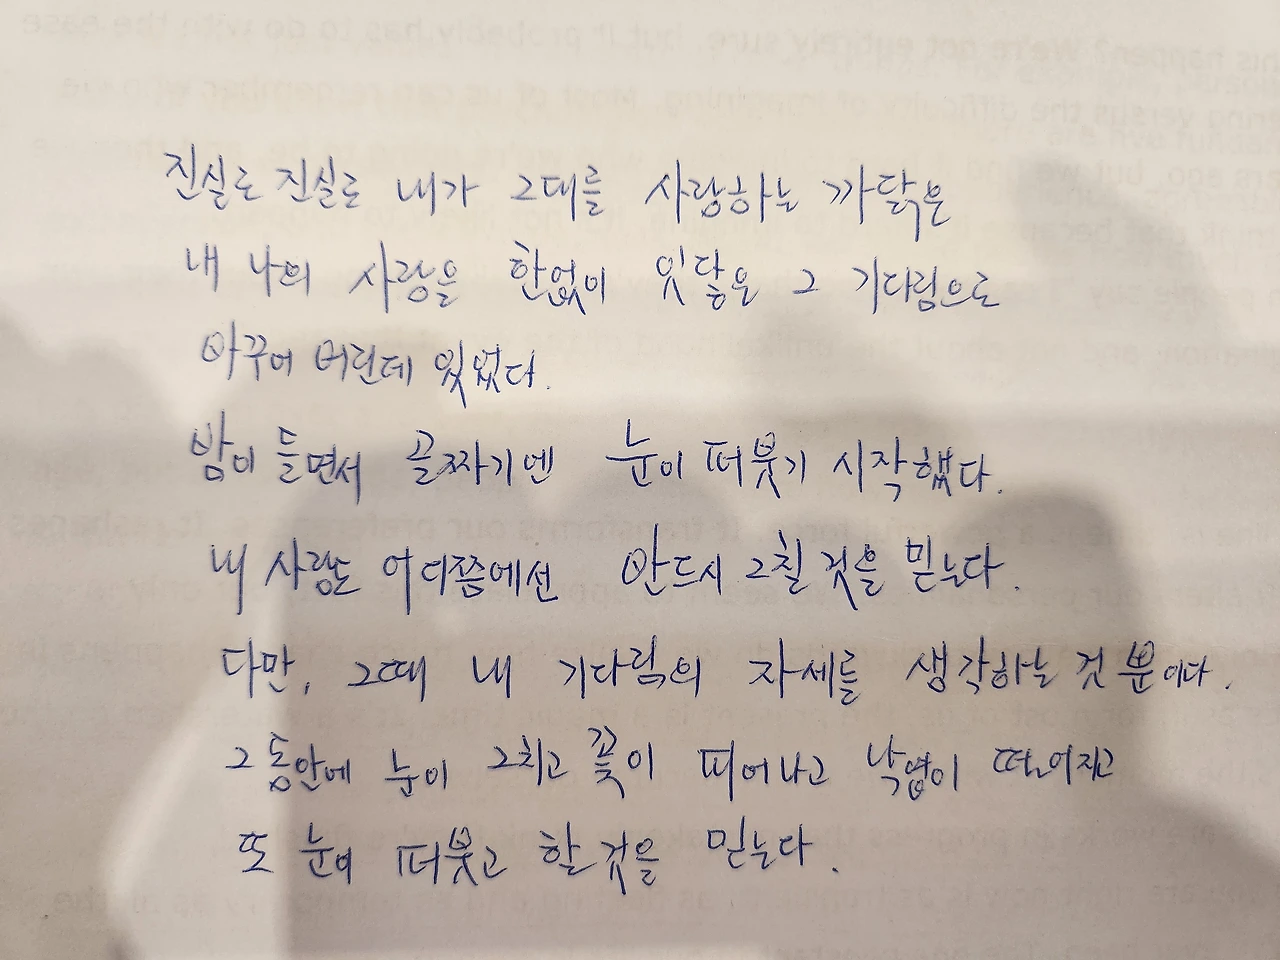 진실로 진실로 내가 그대를 사랑하는 까닭은
내 나의 사랑을 한없이 잇닿은 그 기다림으로
바꾸어 버린데 있었다.
밤이 들면서 골짜기엔 눈이 퍼붓기 시작했다.
내 사랑도 어디쯤에선 반드시 그칠 것을 믿는다.
다만, 그때 내 기다림의 자세를 생각하는 것 뿐이다.
그 동안에 눈이 그치고 꽃이 피어나고 낙엽이 떨어지고
또 눈이 퍼붓고 할 것을 믿는다.